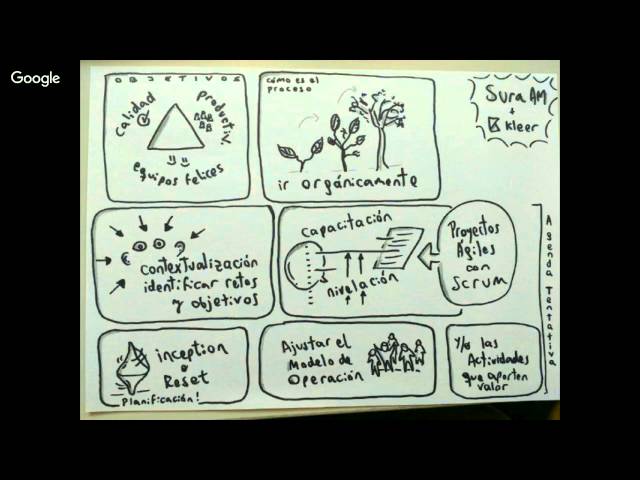 Google
OBJETIVOS
calidad
productiv.
equipos felices
cómo es el
proceso
ir orgánicamente
Sura AM
+
Kleer
contextualización
identificar retos
y objetivos
capacitación
nivelación
Proyectos
Ágiles
con
Scrum
inception
o
Reset
Planificación!
Ajustar el
Modelo de
Operación
Y/o las
Actividades
que aporten
valor
Agenda Tentativa